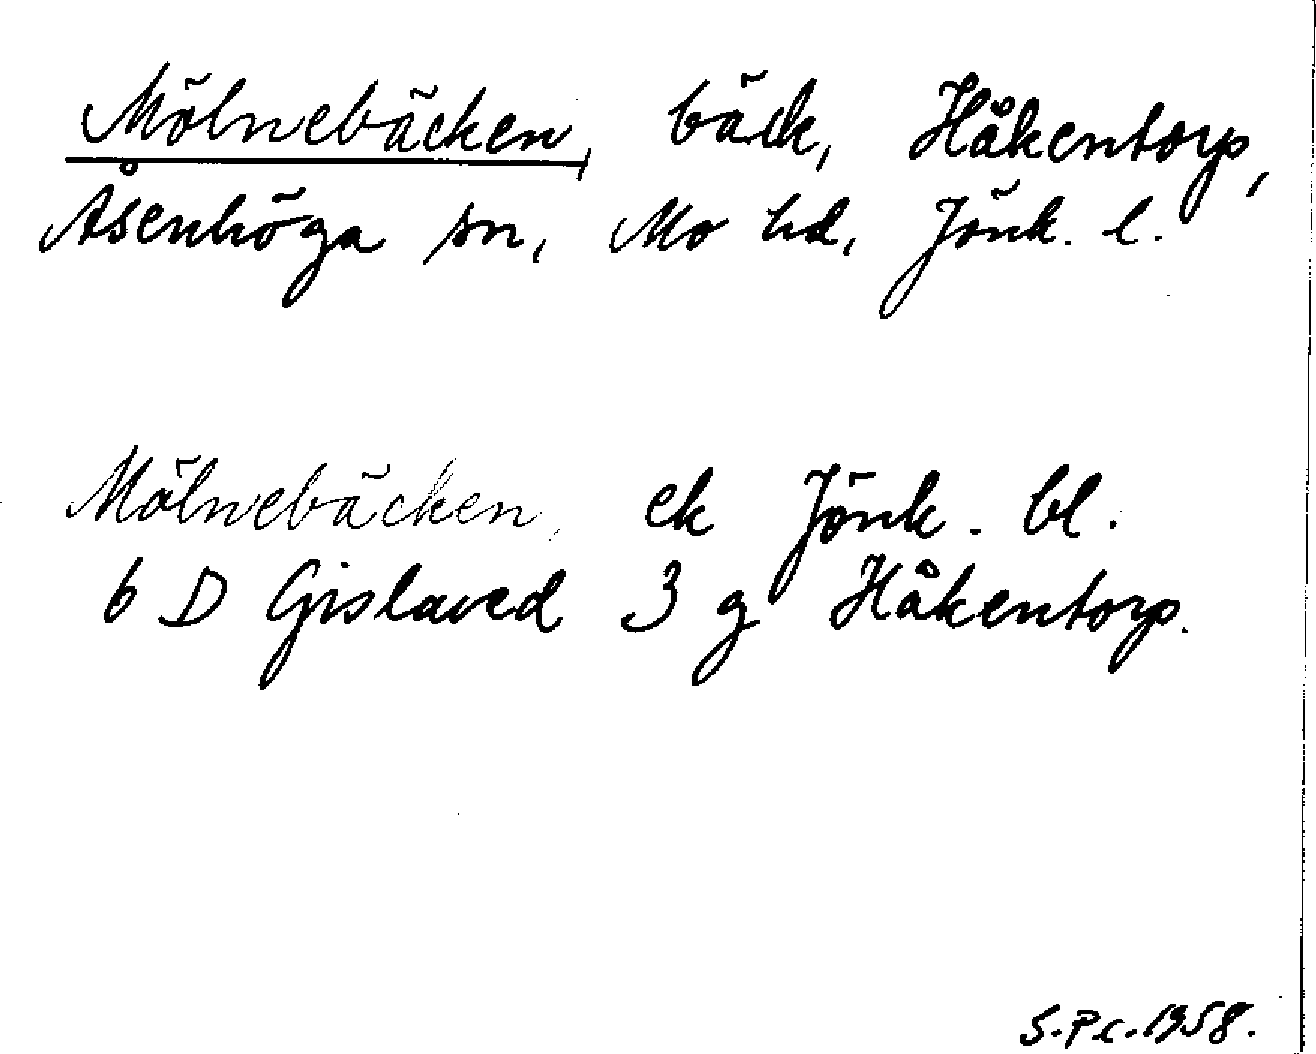 Mölnebäcken, bäck, Håkentorp,
Åsenhöga sn, Mo hd, Jönk. l.
Mölnebäcken, ek Jönk. bl.
6 D Gislaved 3 g Håkentorp.
S. Pc. 1958.